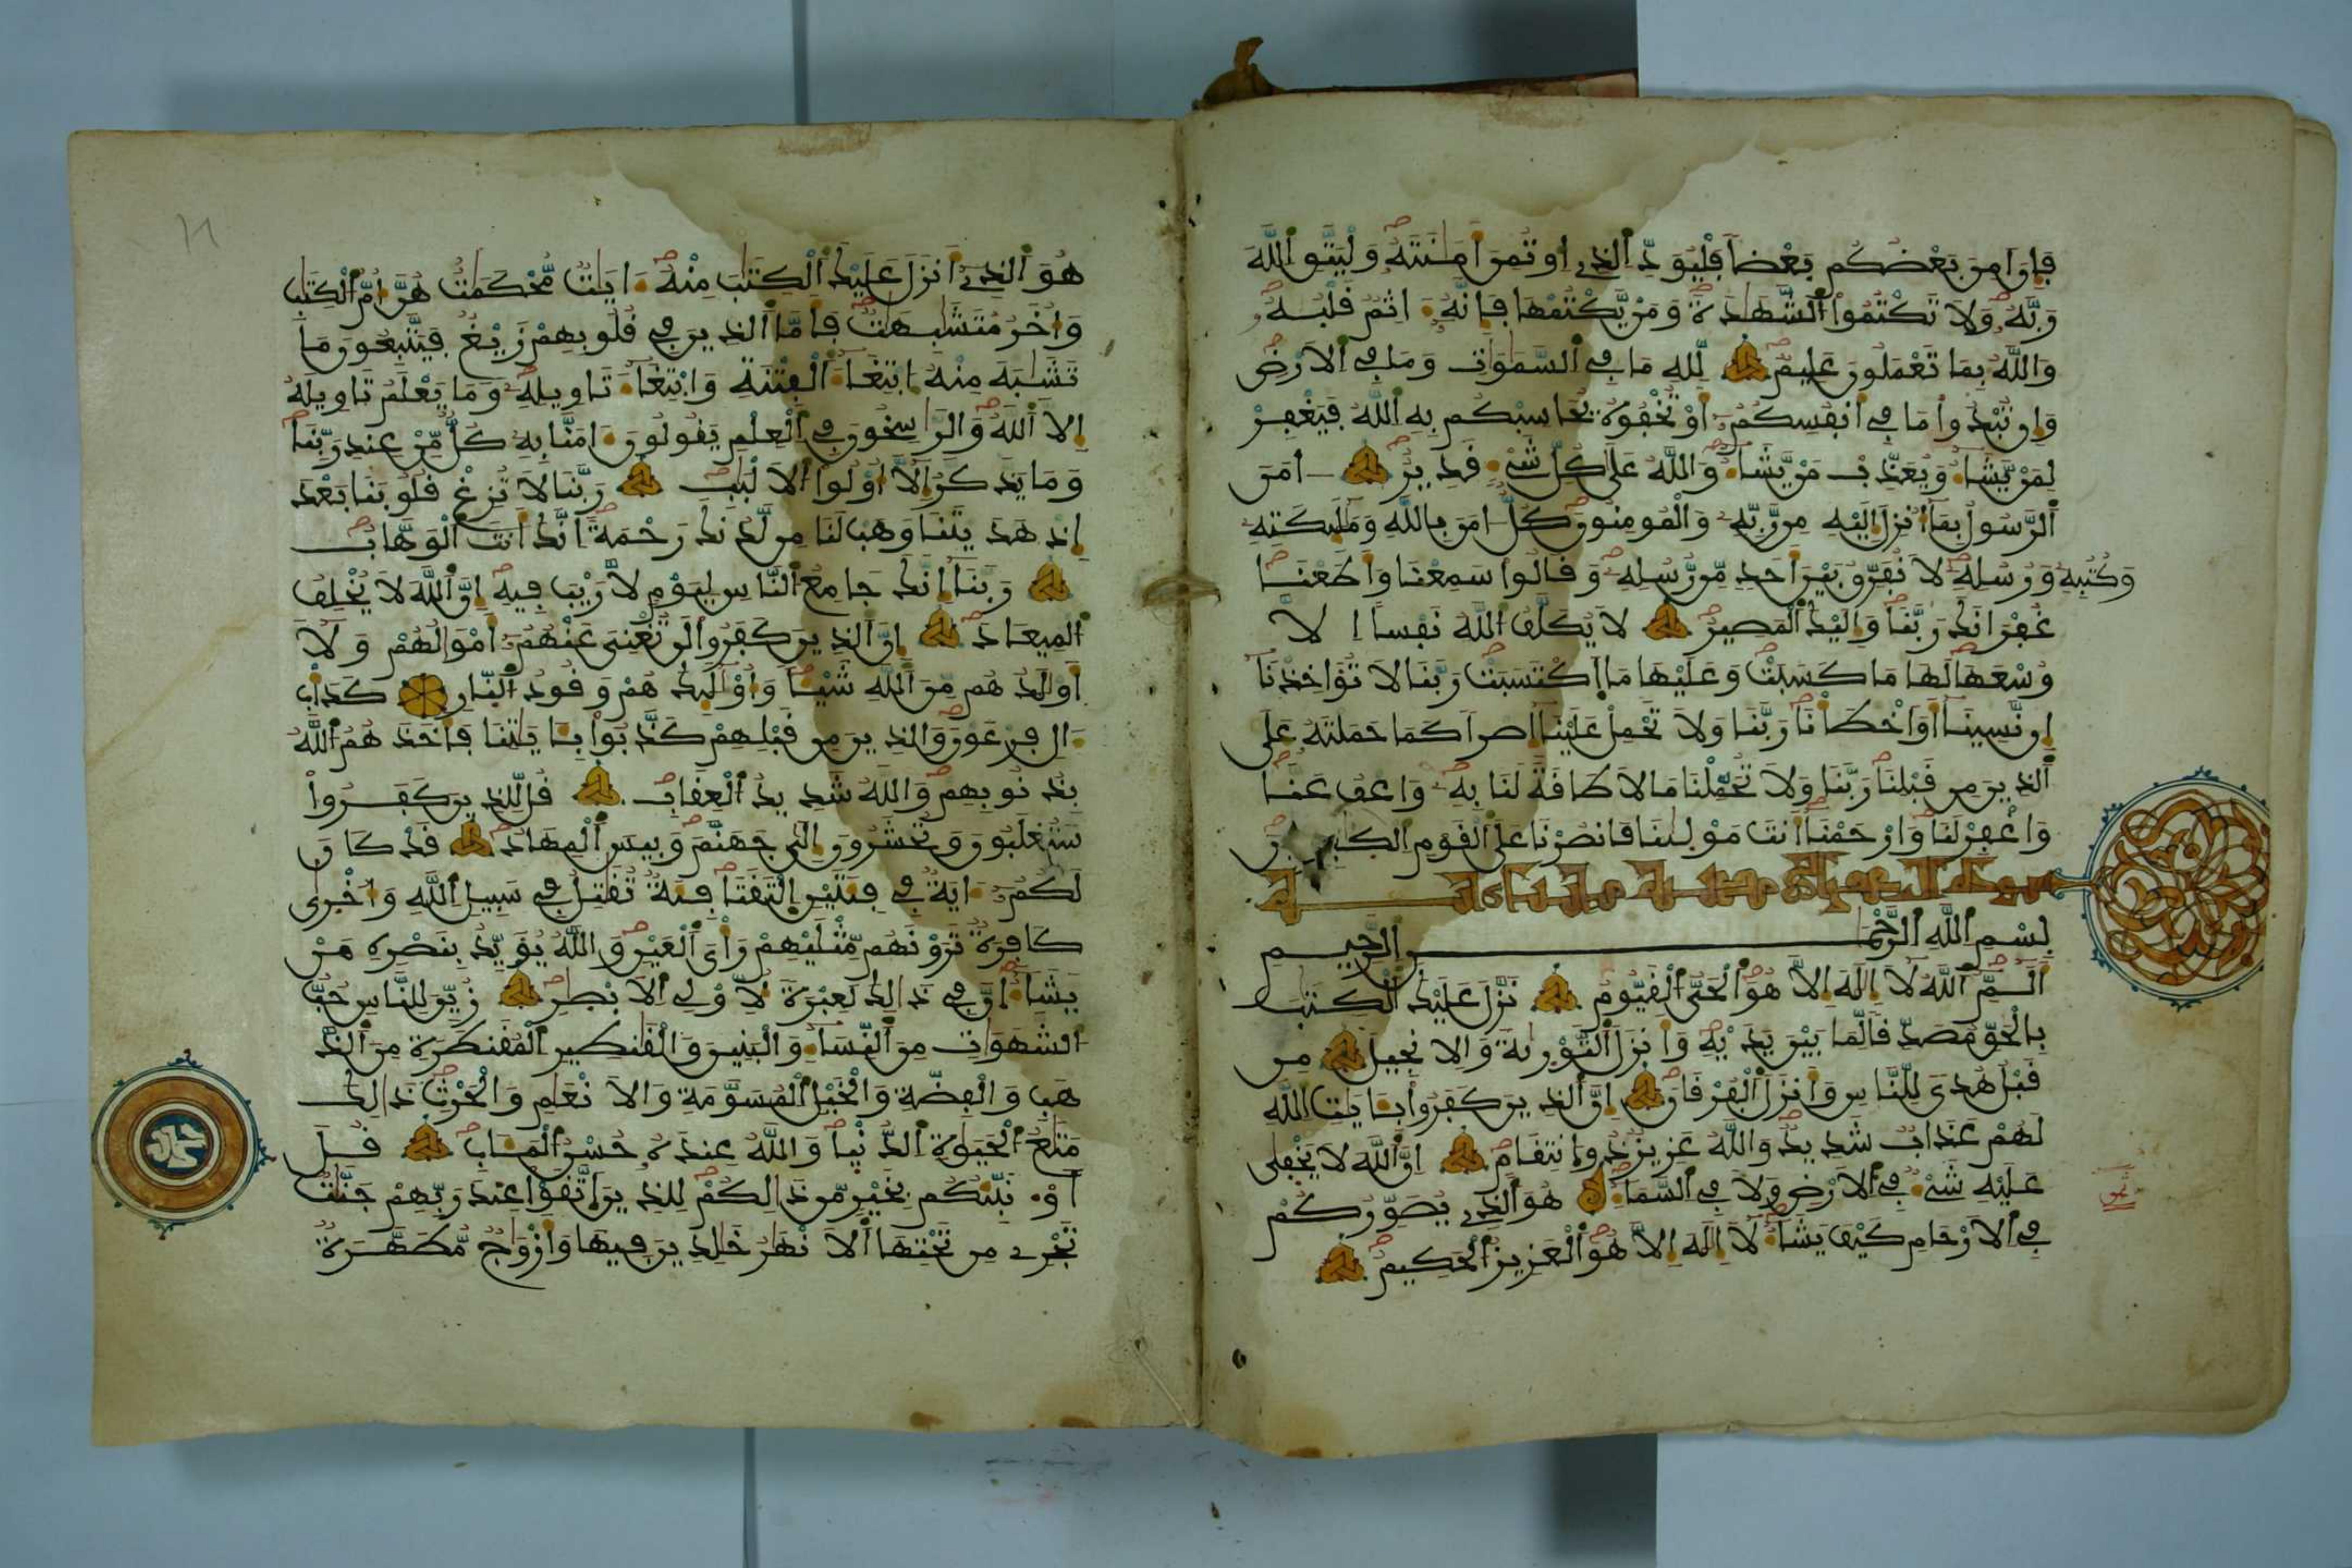 فَإِنَ امِنَ بَعْضُكُم بَعْضاً فَلْيُوَدِّ اِلذِے اِوتُمِنَ أَمَٰنَتَهُۥ وَلْيَتَّقِ اِللَّهَ
رَبَّهُۥ وَلَا تَكْتُمُواْ اُلشَّهَٰدَةَ وَمَنْ يَّكْتُمْهَا فَإِنَّهُۥٓ ءَاثِمٌ قَلْبُهُۥ
وَاللَّهُ بِمَا تَعْمَلُونَ عَلِيمٌ لِّلهِ مَا فِے اِلسَّمَٰوَٰتِ وَمَا فِے اِلَارْضِ
وَإِن تُبْدُواْ مَا فِےٓ أَنفُسِكُمُۥٓ أَوْ تُخْفُوهُ يُحَاسِبْكُم بِهِ اِللَّهُ فَيَغْفِرْ
لِمَنْ يَّشَآءُ وَيُعَذِّب مَّنْ يَّشَآءُ وَاللَّهُ عَلَىٰ كُلِّ شَےْءٍ قَدِيرٌ ءَامَنَ
اَلرَّسُولُ بِمَآ أُنزِلَ إِلَيْهِ مِن رَّبِّهِۦ وَالْمُومِنُونَ كُلٌّ ءَامَنَ بِاللَّهِ وَمَلَٰٓئِكَتِهِۦ
وَكُتُبِهِۦ وَرُسُلِهِۦ لَا نُفَرِّقُ بَيْنَ أَحَدٍ مِّن رُّسُلِهِۦ وَقَالُواْ سَمِعْنَا وَأَطَعْنَا
غُفْرَانَكَ رَبَّنَا وَإِلَيْكَ اَلْمَصِيرُ لَا يُكَلِّفُ اُللَّهُ نَفْساً اِلَّا
وُسْعَهَا لَهَا مَا كَسَبَتْ وَعَلَيْهَا مَا اَكْتَسَبَتْ رَبَّنَا لَا تُؤَاخِذْنَآ
إِن نَّسِينَآ أَوَ اَخْطَأْنَا رَبَّنَا وَلَا تَحْمِلْ عَلَيْنَآ إِصْراً كَمَا حَمَلْتَهُۥ عَلَى
اَلذِينَ مِن قَبْلِنَا رَبَّنَا وَلَا تُحَمِّلْنَا مَا لَا طَاقَةَ لَنَا بِهِۦ وَاعْفُ عَنَّا
وَاغْفِرْ لَنَا وَارْحَمْنَآ أَنتَ مَوْلَىٰنَا فَانصُرْنَا عَلَى اَلْقَوْمِ اِلْكٰفِرِينَ
بِسْمِ اِللَّهِ اِلرَّحْمَٰنِ اِلرَّحِيمِ
أَلَٓمِّٓ اَللَّهُ لَآ إِلَٰهَ إِلَّا هُوَ اَلْحَيُّ اَلْقَيُّومُ نَزَّلَ عَلَيْكَ اَلْكِتَٰبَ
بِالْحَقِّ مُصَدِّقاً لِّمَا بَيْنَ يَدَيْهِ وَأَنزَلَ اَلتَّوْرَىٰةَ وَالِانجِيلَ مِن
قَبْلُ هُدىً لِّلنَّاسِ وَأَنزَلَ اَلْفُرْقَانَ إِنَّ اَلذِينَ كَفَرُواْ بِـَٔايَٰتِ اِللَّهِ
لَهُمْ عَذَابٌ شَدِيدٌ وَاللَّهُ عَزِيزٌ ذُو اُنتِقَامٍ اِنَّ اَللَّهَ لَا يَخْفَىٰ
عَلَيْهِ شَےْءٌ فِے اِلَارْضِ وَلَا فِے اِلسَّمَآءِ هُوَ اَلذِے يُصَوِّرُكُمْ
فِے اِلَارْحَامِ كَيْفَ يَشَآءُ لَآ إِلَٰهَ إِلَّا هُوَ اَلْعَزِيزُ اُلْحَكِيمُ
هُوَ اَلذِےٓ أَنزَلَ عَلَيْكَ اَلْكِتَٰبَ مِنْهُ ءَايَٰتٌ مُّحْكَمَٰتٌ هُنَّ أُمُّ اُلْكِتَٰبِ
وَأُخَرُ مُتَشَٰبِهَٰتٌ فَأَمَّا اَلذِينَ فِے قُلُوبِهِمْ زَيْغٌ فَيَتَّبِعُونَ مَا
تَشَٰبَهَ مِنْهُ اُبْتِغَآءَ اَلْفِتْنَةِ وَابْتِغَآءَ تَاوِيلِهِۦ وَمَا يَعْلَمُ تَاوِيلَهُۥٓ
إِلَّا اَللَّهُ وَالرَّٰسِخُونَ فِے اِلْعِلْمِ يَقُولُونَ ءَامَنَّا بِهِۦ كُلٌّ مِّنْ عِندِ رَبِّنَا
وَمَا يَذَّكَّرُ إِلَّآ أُوْلُواْ اُلَالْبَٰبِ رَبَّنَا لَا تُزِغْ قُلُوبَنَا بَعْدَ
إِذْ هَدَيْتَنَا وَهَبْ لَنَا مِن لَّدُنكَ رَحْمَةً اِنَّكَ أَنتَ اَلْوَهَّابُ
رَبَّنَآ إِنَّكَ جَامِعُ اُلنَّاسِ لِيَوْمٍ لَّا رَيْبَ فِيهِ إِنَّ اَللَّهَ لَا يُخْلِفُ
اُلْمِيعَادَ إِنَّ اَلذِينَ كَفَرُواْ لَن تُغْنِيَ عَنْهُمُۥٓ أَمْوَٰلُهُمْ وَلَآ
أَوْلَٰدُهُم مِّنَ اَللَّهِ شَيْـٔاً وَأُوْلَٰٓئِكَ هُمْ وَقُودُ اُلنَّارِ كَدَأْبِ
ءَالِ فِرْعَوْنَ وَالذِينَ مِن قَبْلِهِمْ كَذَّبُواْ بِـَٔايَٰتِنَا فَأَخَذَهُمُ اُللَّهُ
بِذُنُوبِهِمْ وَاللَّهُ شَدِيدُ اُلْعِقَابِ قُل لِّلذِينَ كَفَرُواْ
سَتُغْلَبُونَ وَتُحْشَرُونَ إِلَىٰ جَهَنَّمَ وَبِيسَ اَلْمِهَادُ قَدْ كَانَ
لَكُمُۥٓ ءَايَةٌ فِے فِئَتَيْنِ اِلْتَقَتَا فِئَةٌ تُقَٰتِلُ فِے سَبِيلِ اِللَّهِ وَأُخْرَىٰ
كَافِرَةٌ تَرَوْنَهُم مِّثْلَيْهِمْ رَأْيَ اَلْعَيْنِ وَاللَّهُ يُؤَيِّدُ بِنَصْرِهِۦ مَنْ
يَّشَآءُ إِنَّ فِے ذَٰلِكَ لَعِبْرَةً لِّأُوْلِے اِلَابْصِٰرِ زُيِّنَ لِلنَّاسِ حُبُّ
اُلشَّهَوَٰتِ مِنَ اَلنِّسَآءِ وَالْبَنِينَ وَالْقَنَٰطِيرِ اِلْمُقَنطَرَةِ مِنَ اَلذَّ
هَبِ وَالْفِضَّةِ وَالْخَيْلِ اِلْمُسَوَّمَةِ وَالَانْعَٰمِ وَالْحَرْثِ ذَٰلِكَ
مَتَٰعُ اُلْحَيَوٰةِ اِلدُّنْيَا وَاللَّهُ عِندَهُۥ حُسْنُ اُلْمَـَٔابِ قُلَ
اَوْ۬نَبِّئُكُم بِخَيْرٍ مِّن ذَٰلِكُمْ لِلذِينَ اَتَّقَوْاْ عِندَ رَبِّهِمْ جَنَّٰتٌ
تَجْرِے مِن تَحْتِهَا اَلَانْهَٰرُ خَٰلِدِينَ فِيهَا وَأَزْوَٰجٌ مُّطَهَّرَةٌ